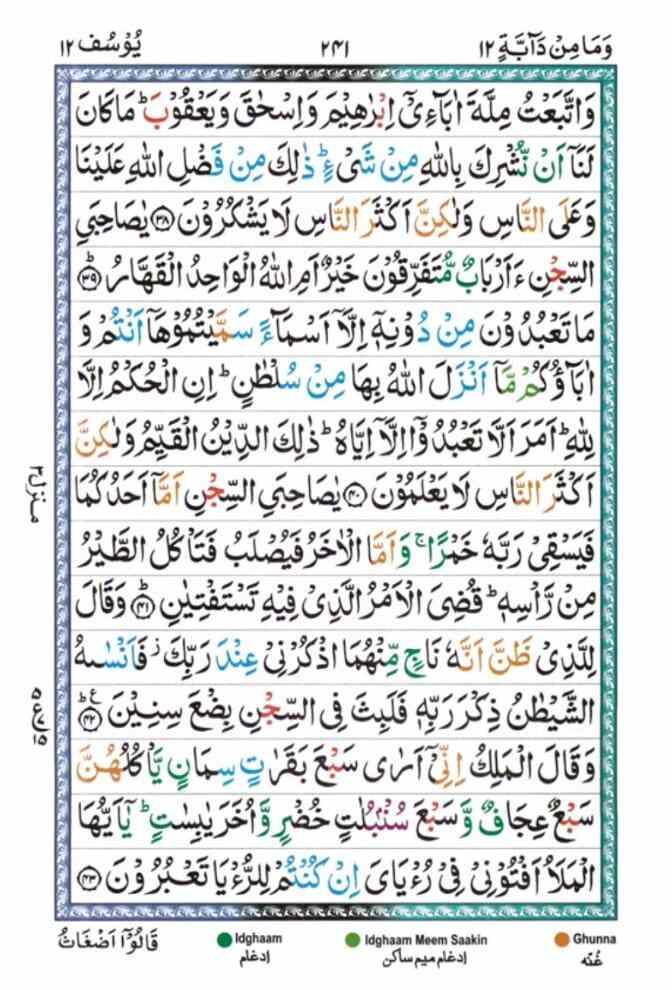 وَمَا مِنْ دَآبَّةٍ ١٢ ٢٤١ يُوْسُف ١٢
وَاتَّبَعْتُ مِلَّةَ اٰبَآءِىْٓ اِبْرٰهِيْمَ وَاِسْحٰقَ وَيَعْقُوْبَ ؕ مَا كَانَ
لَنَاۤ اَنْ نُّشْرِكَ بِاللّٰهِ مِنْ شَىْءٍ ؕ ذٰلِكَ مِنْ فَضْلِ اللّٰهِ عَلَيْنَا
وَعَلَى النَّاسِ وَلٰكِنَّ اَكْثَرَ النَّاسِ لَا يَشْكُرُوْنَ ﴿۳۸﴾ يٰصَاحِبَىِ
السِّجْنِ ءَاَرْبَابٌ مُّتَفَرِّقُوْنَ خَيْرٌ اَمِ اللّٰهُ الْوَاحِدُ الْقَهَّارُ ؕ﴿۳۹﴾
مَا تَعْبُدُوْنَ مِنْ دُوْنِهٖۤ اِلَّاۤ اَسْمَآءً سَمَّيْتُمُوْهَاۤ اَنْتُمْ وَ
اٰبَآؤُكُمْ مَّاۤ اَنْزَلَ اللّٰهُ بِهَا مِنْ سُلْطٰنٍ ؕ اِنِ الْحُكْمُ اِلَّا
لِلّٰهِ ؕ اَمَرَ اَلَّا تَعْبُدُوْۤا اِلَّاۤ اِيَّاهُ ؕ ذٰلِكَ الدِّيْنُ الْقَيِّمُ وَلٰكِنَّ
اَكْثَرَ النَّاسِ لَا يَعْلَمُوْنَ ﴿۴۰﴾ يٰصَاحِبَىِ السِّجْنِ اَمَّاۤ اَحَدُكُمَا
فَيَسْقِىْ رَبَّهٗ خَمْرًا ۚ وَاَمَّا الْاٰخَرُ فَيُصْلَبُ فَتَاْكُلُ الطَّيْرُ
مِنْ رَّاْسِهٖ ؕ قُضِىَ الْاَمْرُ الَّذِىْ فِيْهِ تَسْتَفْتِيٰنِ ؕ﴿۴۱﴾ وَقَالَ
لِلَّذِىْ ظَنَّ اَنَّهٗ نَاجٍ مِّنْهُمَا اذْكُرْنِىْ عِنْدَ رَبِّكَ ز فَاَنْسٰىهُ
الشَّيْطٰنُ ذِكْرَ رَبِّهٖ فَلَبِثَ فِى السِّجْنِ بِضْعَ سِنِيْنَ ؕ﴿۴۲﴾ ع
وَقَالَ الْمَلِكُ اِنِّىْۤ اَرٰى سَبْعَ بَقَرٰتٍ سِمَانٍ يَّاْكُلُهُنَّ
سَبْعٌ عِجَافٌ وَّسَبْعَ سُنْۢبُلٰتٍ خُضْرٍ وَّاُخَرَ يٰبِسٰتٍ ؕ يٰۤاَيُّهَا
الْمَلَاُ اَفْتُوْنِىْ فِىْ رُءْيَاىَ اِنْ كُنْتُمْ لِلرُّءْيَا تَعْبُرُوْنَ ﴿۴۳﴾
منزل ۳
قَالُوْۤا اَضْغَاثُ
Idghaam
ادغام
Idghaam Meem Saakin
ادغام میم ساکن
Ghunna
غُنّہ